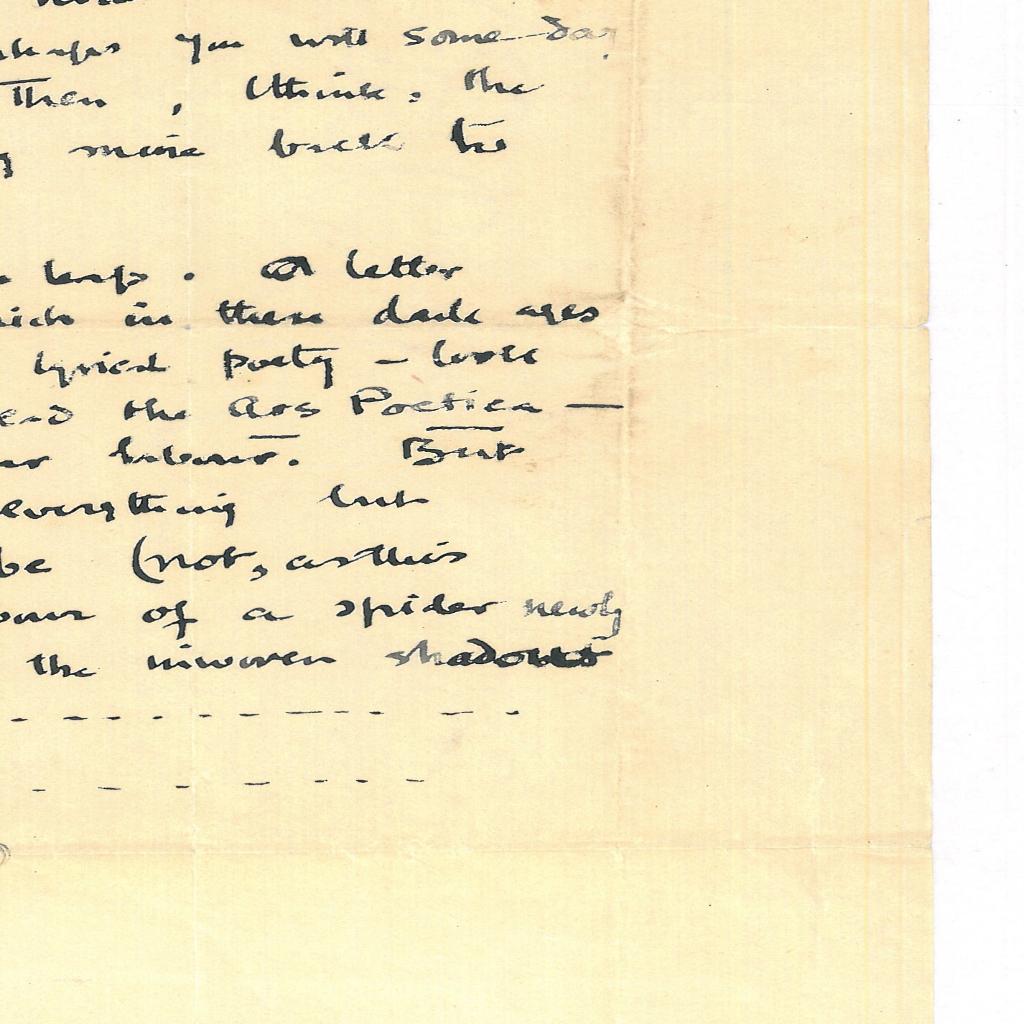 here
perhaps you will some day
Then, I think, the
more back to
leap. A letter
which in these dark ages
lyrical poetry – look
read the Ars Poetica —
labour. But
everything but
be (not, as this
of a spider newly
the inwoven shadows